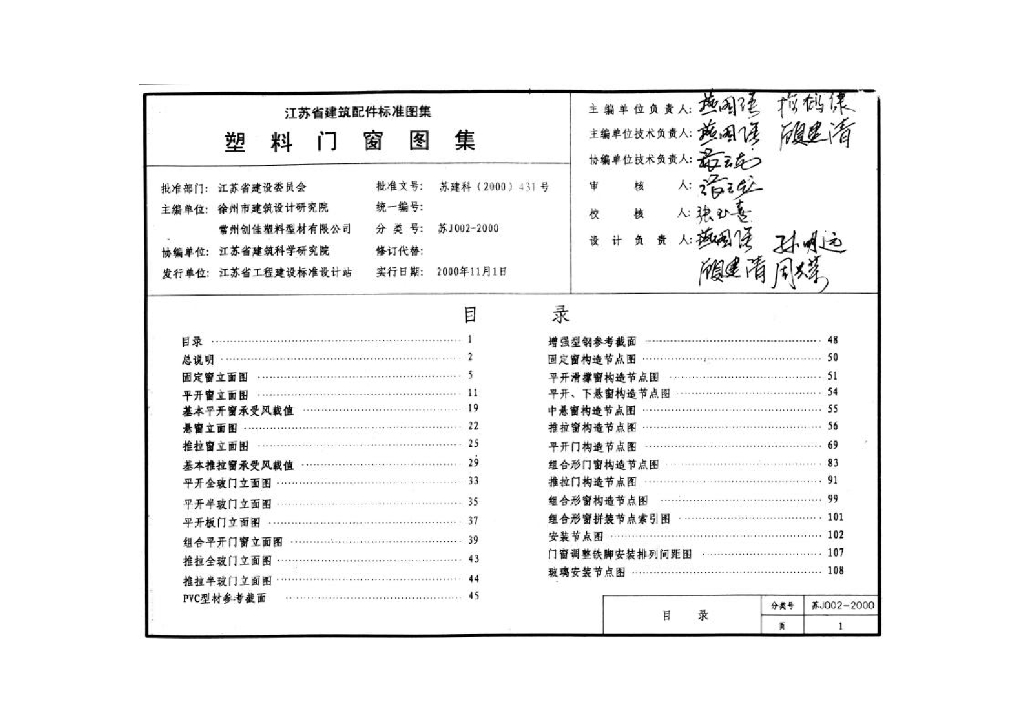 江苏省建筑配件标准图集
塑料门窗图集
批准部门: 江苏省建设委员会
主编单位: 徐州市建筑设计研究院
常州创佳塑料型材有限公司
协编单位: 江苏省建筑科学研究院
发行单位: 江苏省工程建设标准设计站
批准文号: 苏建科(2000)431号
统一编号:
分类号: 苏J002-2000
修订代替:
实行日期: 2000年11月1日
主编单位负责人:
主编单位技术负责人:
协编单位技术负责人:
审核人:
校核人:
设计负责人: 孙明远
顾建清
目录
目录 1
总说明 2
固定窗立面图 5
平开窗立面图 11
基本平开窗承受风载值 19
悬窗立面图 22
推拉窗立面图 25
基本推拉窗承受风载值 29
平开全玻门立面图 33
平开半玻门立面图 35
平开板门立面图 37
组合平开门窗立面图 39
推拉全玻门立面图 43
推拉半玻门立面图 44
PVC型材参考截面 45
增强型钢参考截面 48
固定窗构造节点图 50
平开滑撑窗构造节点图 51
平开、下悬窗构造节点图 54
中悬窗构造节点图 55
推拉窗构造节点图 56
平开门构造节点图 69
组合形门窗构造节点图 83
推拉门构造节点图 91
组合形窗构造节点图 99
组合形窗拼装节点索引图 101
安装节点图 102
门窗调整铁脚安装排列间距图 107
玻璃安装节点图 108
目录
分类号 苏J002-2000
页 1